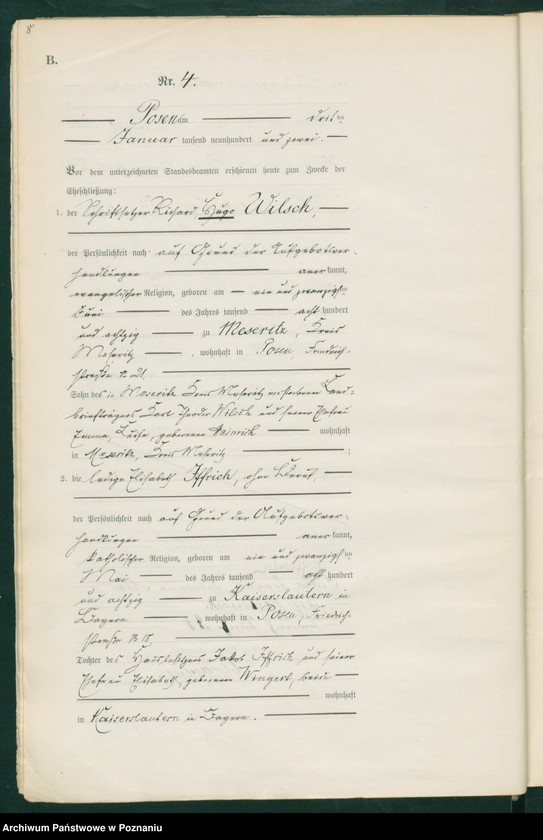 8
B.
Nr. 4.
Posen am dritten
Januar tausend neunhundert und zwei.
Vor dem unterzeichneten Standesbeamten erschienen heute zum Zwecke der
Eheschließung:
1. der Schriftsetzer Richard Hugo Wilsch,
der Persönlichkeit nach auf Grund der Aufgebotsver-
handlungen anerkannt,
evangelischer Religion, geboren am ein und zwanzigsten
Juni des Jahres tausend acht hundert
und achtzig zu Meseritz, Kreis
Meseritz, wohnhaft in Posen Friedrich-
straße
Sohn des in Meseritz Kreis Meseritz verstorbenen Land-
briefträgers Karl Theodor Wilsch und seiner Ehefrau
Emma, Luise, geborenen Heinrich wohnhaft
in Meseritz, Kreis Meseritz;
2. die ledige Elisabeth Iffrich, ohne Beruf,
der Persönlichkeit nach auf Grund der Aufgebotsver-
handlungen anerkannt,
katholischer Religion, geboren am ein und zwanzigsten
Mai des Jahres tausend acht hundert
und achtzig zu Kaiserslautern in
Bayern wohnhaft in Posen, Friedrich-
straße
Tochter des Hausbesitzers Jakob Iffrich und seiner
Ehefrau Elisabeth, geborenen Wingert, beide
wohnhaft
in Kaiserslautern in Bayern.
Archiwum Państwowe w Poznaniu